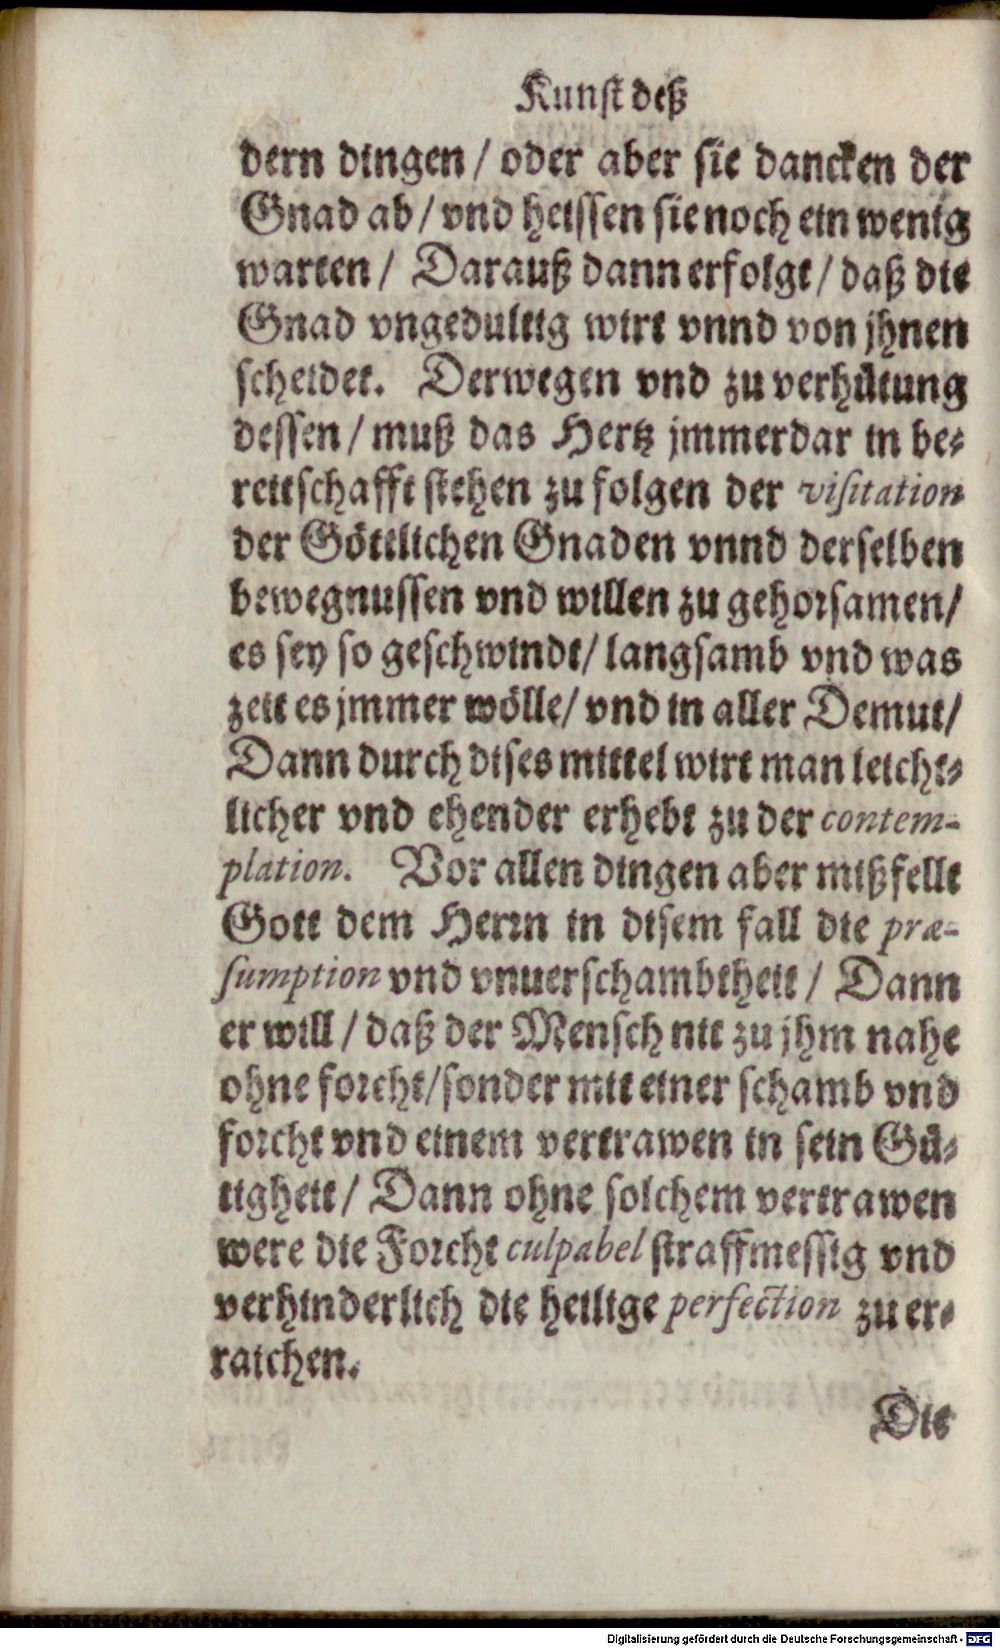 Kunst deß
dern dingen / oder aber sie dancken der
Gnad ab / vnd heissen sie noch ein wenig
warten / Darauß dann erfolgt / daß die
Gnad vngedultig wirt vnnd von jhnen
scheidet. Derwegen vnd zu verhütung
dessen / muß das Hertz jmmerdar in be-
reitschafft stehen zu folgen der visitation
der Göttlichen Gnaden vnnd derselben
bewegnussen vnd willen zu gehorsamen /
es sey so geschwindt / langsamb vnd was
zeit es jmmer wölle / vnd in aller Demut /
Dann durch dises mittel wirt man leicht-
licher vnd ehender erhebt zu der contem-
plation. Vor allen dingen aber mißfellt
Gott dem Herrn in disem fall die præ-
sumption vnd vnuerschambtheit / Dann
er will / daß der Mensch nit zu jhm nahe
ohne forcht / sonder mit einer schamb vnd
forcht vnd einem vertrawen in sein Gü-
tigheit / Dann ohne solchem vertrawen
were die Forcht culpabel straffmessig vnd
verhinderlich die heilige perfection zu er-
raichen.
Die
Digitalisierung gefördert durch die Deutsche Forschungsgemeinschaft - DFG